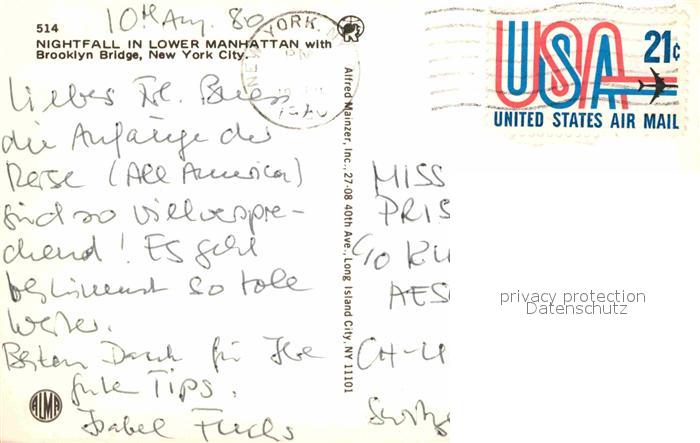 10th Aug. 80
514
NIGHTFALL IN LOWER MANHATTAN with
Brooklyn Bridge, New York City.
Liebes Frl.
die Anfänge der
Reise (All America)
sind so vielverspre-
chend! Es geht
bestimmt so tole
weiter.
Besten Dank für Ihre
gute Tips.
Isabel Fuchs
ALMA
Alfred Mainzer, Inc., 27-08 40th Ave., Long Island City, NY 11101
NEW YORK, N
PM
1980
USA 21c
UNITED STATES AIR MAIL
MISS
PRIS
c/o
AES
CH-4
Switze
privacy protection
Datenschutz